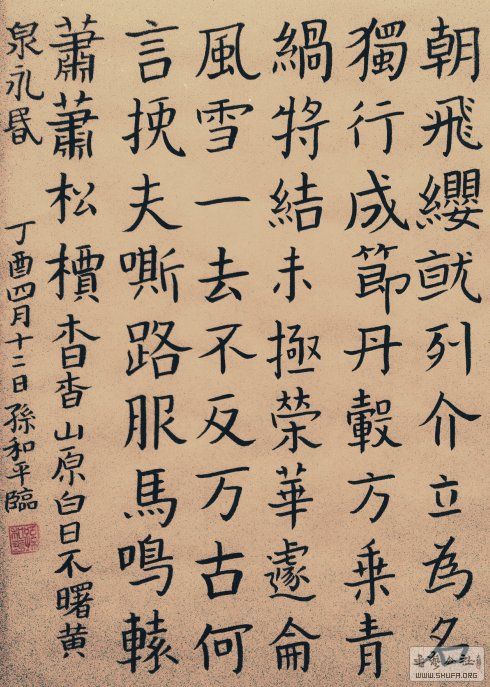 朝飛纓就列介立為名
獨行成節丹轂方乗青
緺將結未極榮華遽侖
風雪一去不反万古何
言挭夫嘶路服馬鳴轅
蕭蕭松檟杳杳山原白日不曙黄
泉永昬
丁酉四月十二日孫和平臨
WWW.SHUFA.ORG